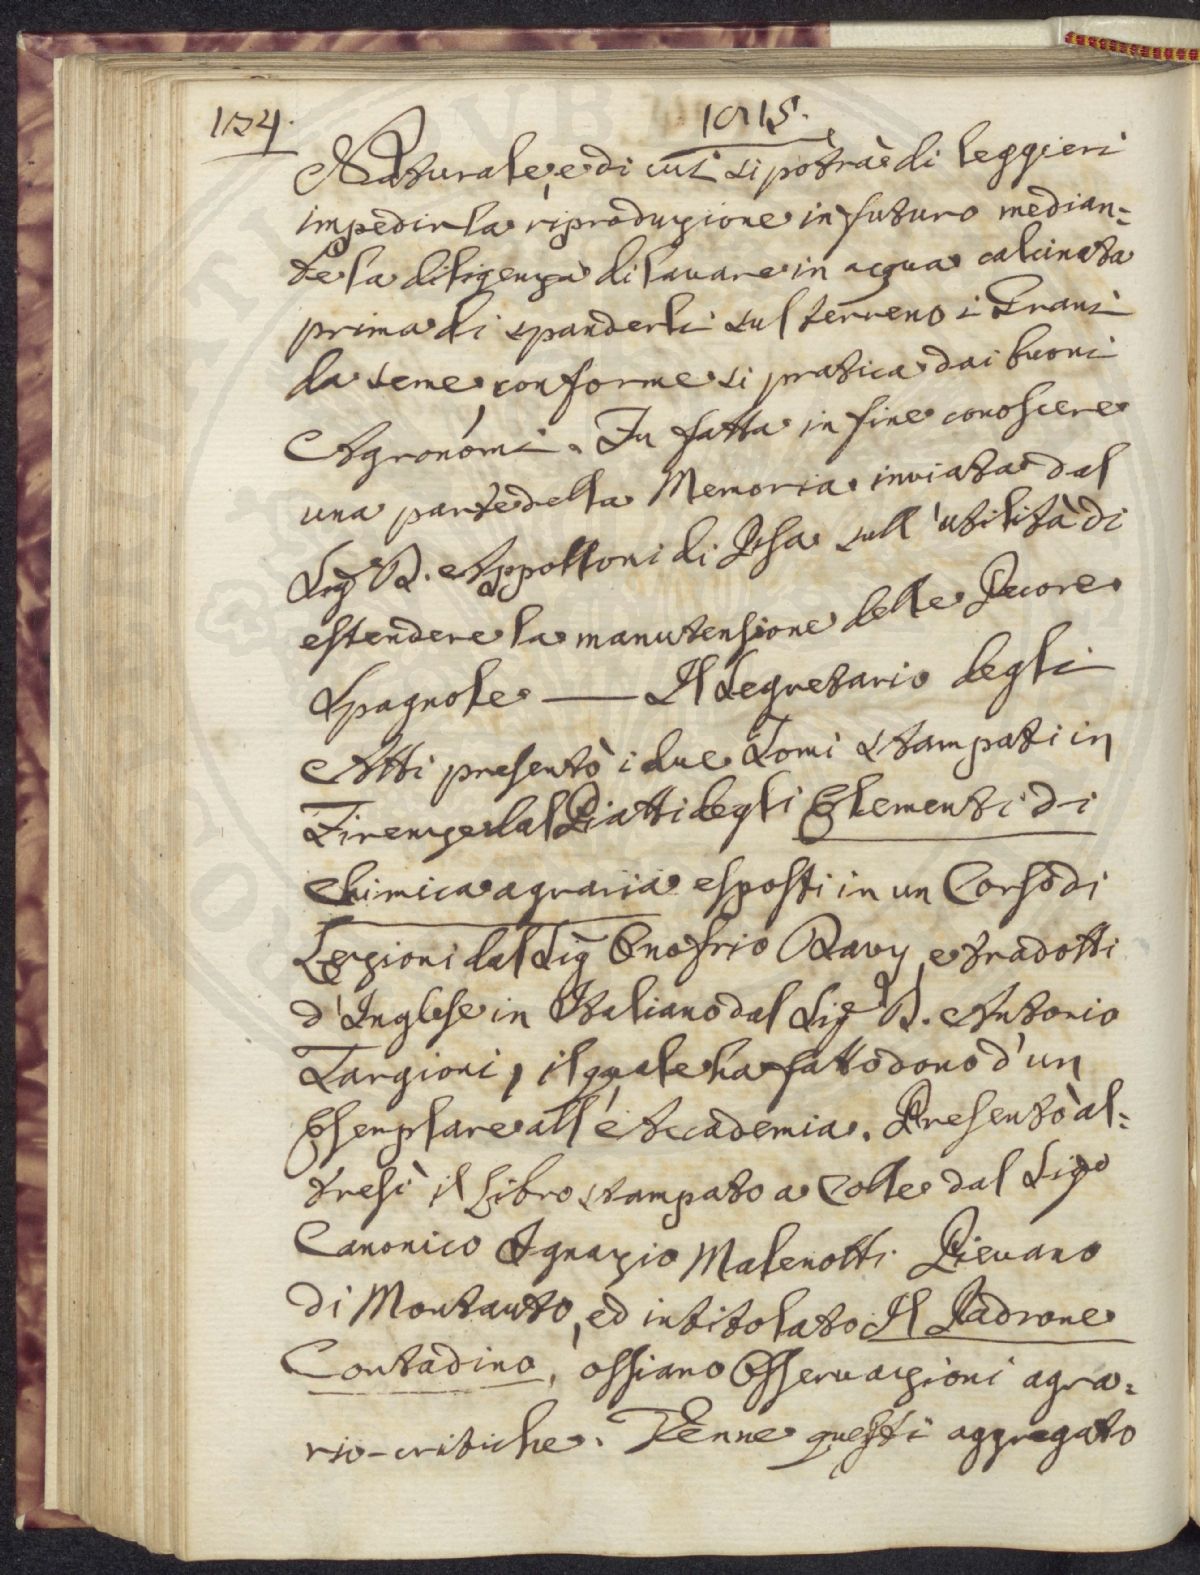 124.
1815.
Naturale, e di cui si potrà di leggieri
impedir la riproduzione in futuro median=
te la diligenza di lavare in acqua calcinata
prima di spanderli sul terreno i Grani
da seme, conforme si pratica dai buoni
Agronomi. Fu fatta in fine conoscere
una parte della Memoria inviata dal
Sig.r D. Appolloni di Pisa sull'utilità di
estendere la manutensione delle Pecore
Spagnole — Il Segretario degli
Atti presentò i due Tomi stampati in
Firenze dal Piatti degli Elementi di
Chimica agraria esposti in un Corso di
Lezioni dal Sig.r Onofrio Davy, e tradotti
d'Inglese in Italiano dal Sig.r D. Antonio
Targioni, il quale ha fatto dono d'un
Esemplare all'Accademia. Presentò al=
tresì il Libro stampato a Colle dal Sig.e
Canonico Ignazio Malenotti Pievano
di Montauto, ed intitolato Il Padrone
Contadino, ossiano Osservazioni agra=
rio-critiche. Venne questi aggregato